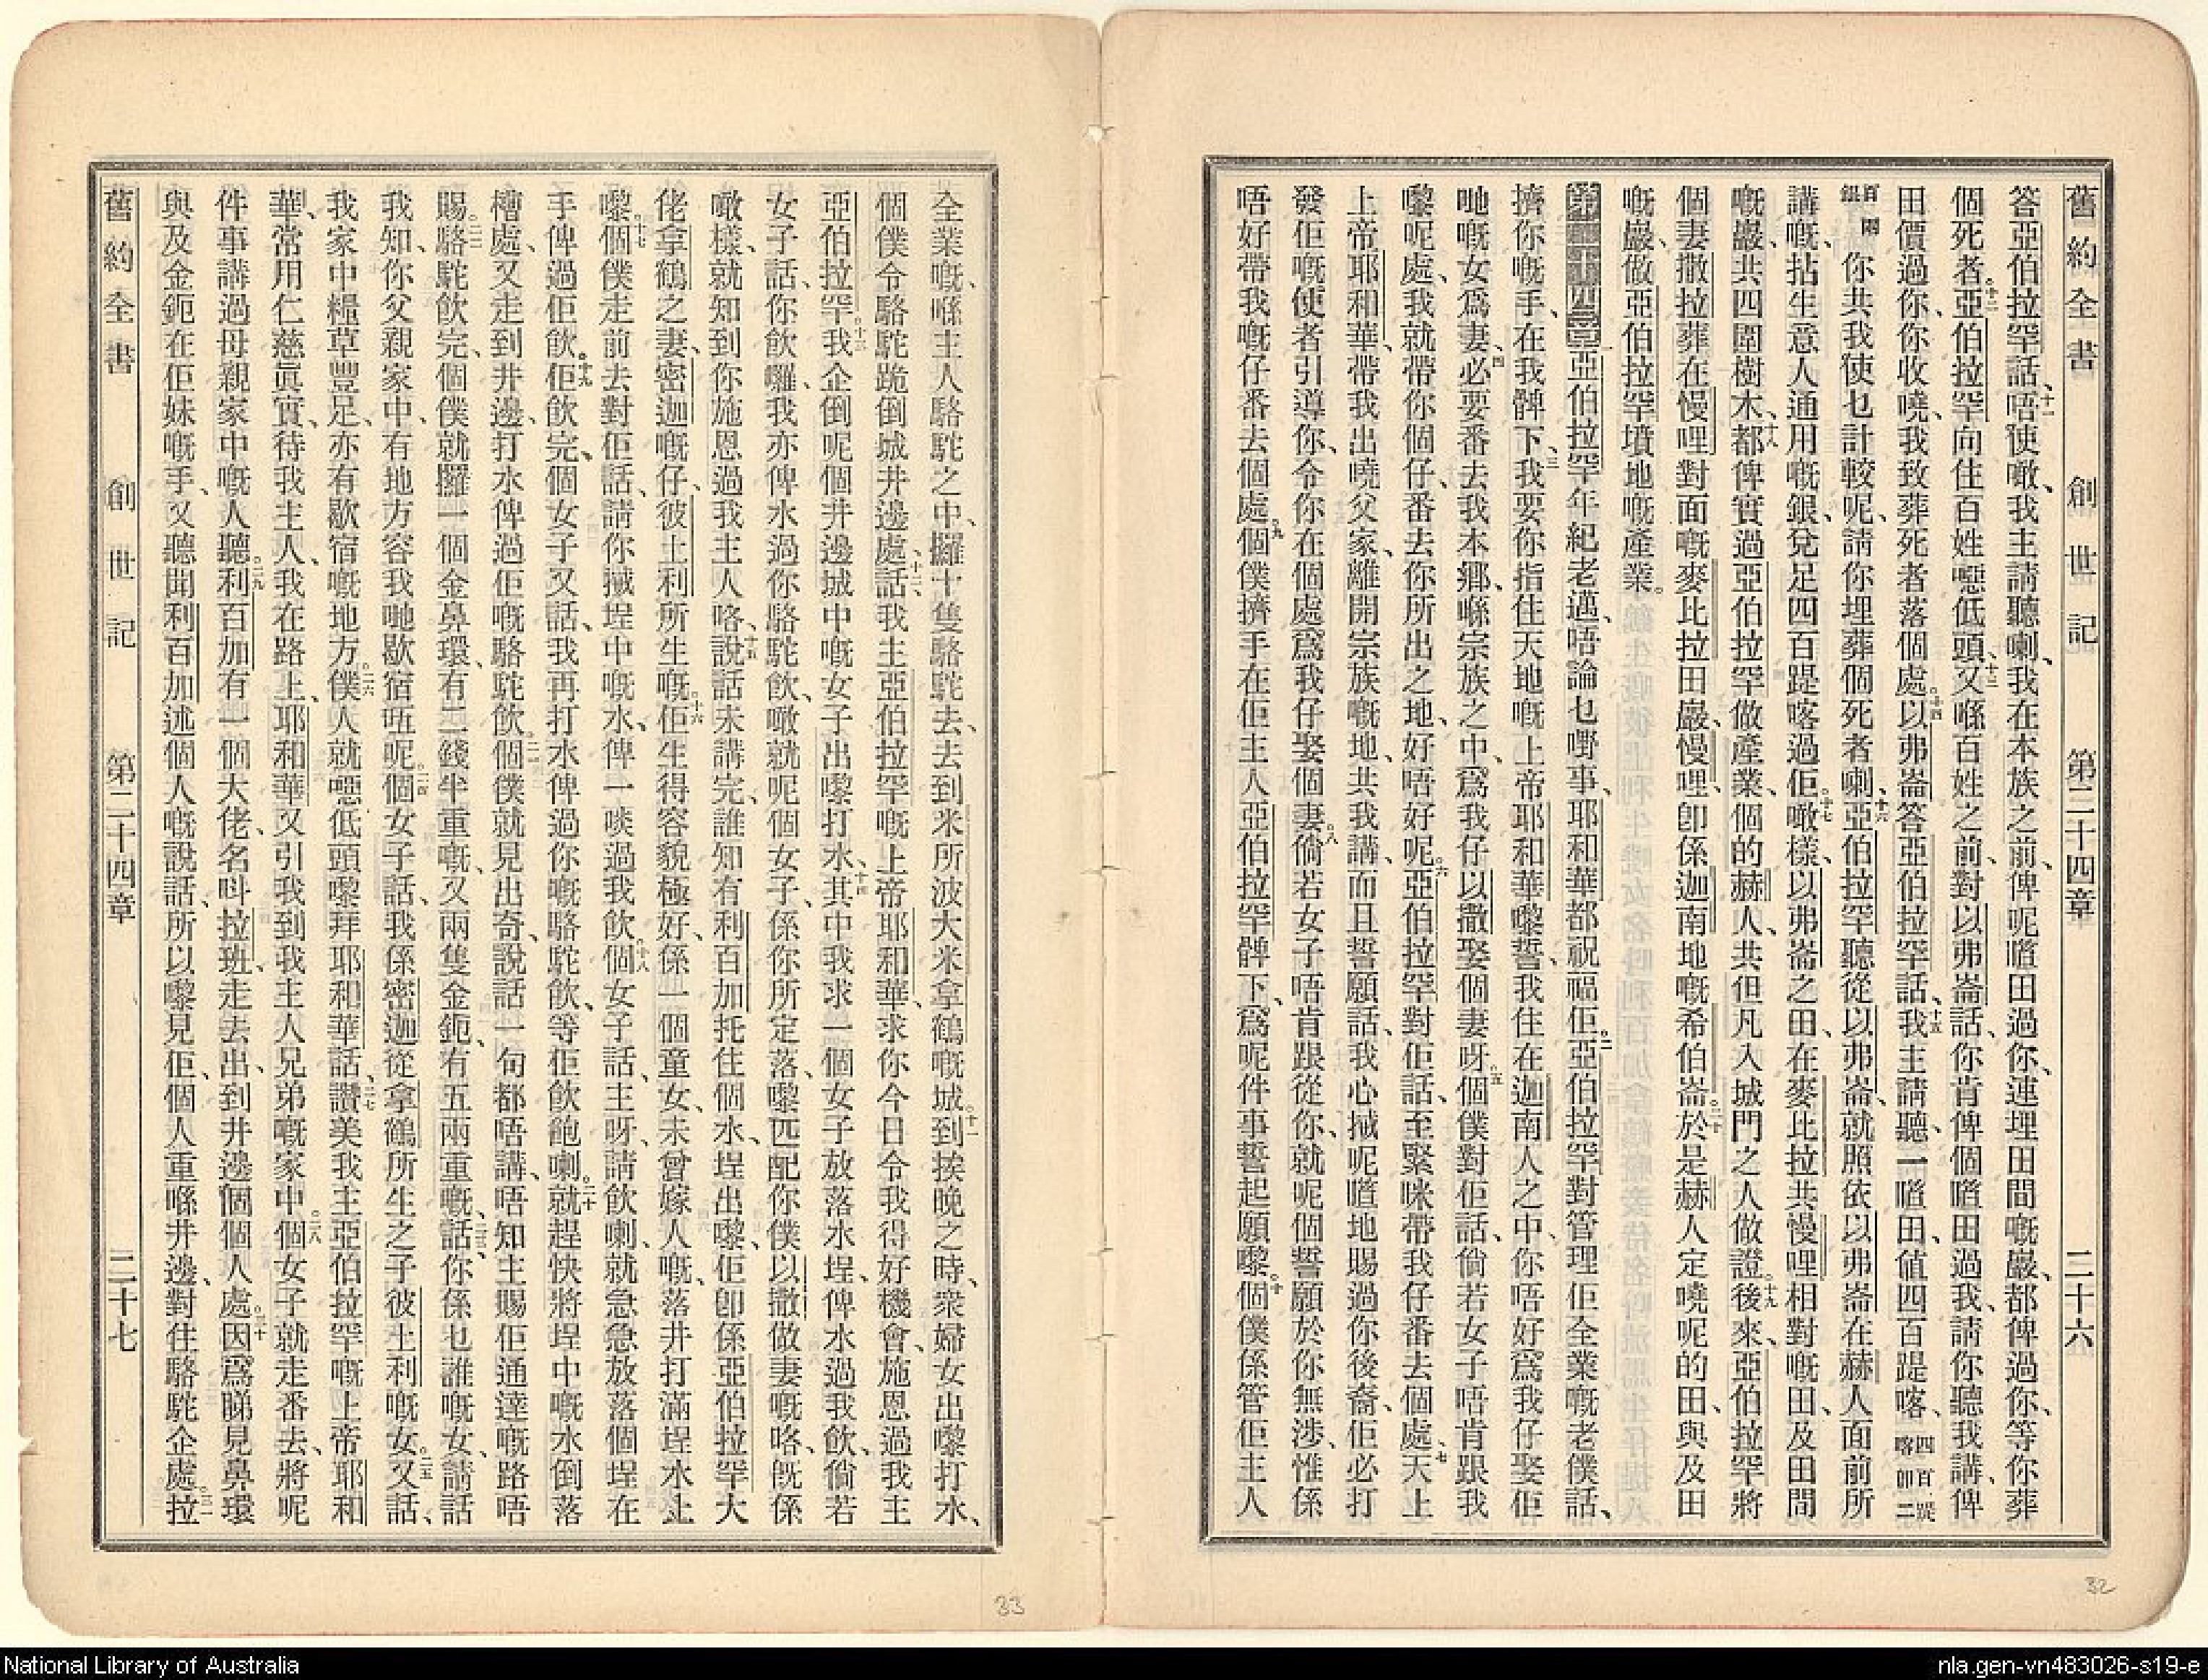 舊約全書　創世記　第二十四章　二十六
答亞伯拉罕話、十一唔使噉、我主請聽喇、我在本族之前、俾呢噹田過你、連埋田間嘅巖、都俾過你、等你葬
個死者。十二亞伯拉罕向住百姓𠵇低頭、十三又喺百姓之前、對以弗崙話、你肯俾個噹田過我、請你聽我講、俾
田價過你、你收嘵、我致葬死者落個處。十四以弗崙答亞伯拉罕話、十五我主請聽、一噹田、值四百踶喀、四百踶喀卽二
百兩銀 你共我使乜計較呢、請你埋葬個死者喇、十六亞伯拉罕聽從以弗崙、就照依以弗崙在赫人面前所
講嘅、拈生意人通用嘅銀、兌足四百踶喀過佢。十七噉樣、以弗崙之田、在麥比拉共慢哩相對嘅田、及田間
嘅巖、共四圍樹木、十八都俾實過亞伯拉罕做產業、個的赫人、共但凡入城門之人做證。十九後來、亞伯拉罕將
個妻撒拉葬在慢哩對面嘅麥比拉田巖、慢哩、卽係迦南地嘅希伯崙。二十於是赫人定嘵呢的田、與及田
嘅巖、做亞伯拉罕墳地嘅產業。
第二十四章 一亞伯拉罕年紀老邁、唔論乜嘢事、耶和華都祝福佢。二亞伯拉罕對管理佢全業嘅老僕話、
擠你嘅手、在我髀下、三我要你指住天地嘅上帝耶和華嚟誓、我住在迦南人之中、你唔好爲我仔娶佢
哋嘅女爲妻、四必要番去我本鄉、喺宗族之中、爲我仔以撒娶個妻呀。五個僕對佢話、倘若女子唔肯跟我
嚟呢處、我就帶你個仔、番去你所出之地、好唔好呢。六亞伯拉罕對佢話、至緊咪帶我仔番去個處、七天上
上帝耶和華、帶我出嘵父家、離開宗族嘅地、共我講、而且誓願話、我心揻呢噹地賜過你後裔、佢必打
發佢嘅使者引導你、令你在個處爲我仔娶個妻。八倘若女子唔肯跟從你、你就呢個誓願於你無涉、惟係
唔好帶我嘅仔番去個處。九個僕擠手在佢主人亞伯拉罕髀下、爲呢件事誓起願嚟。十個僕係管佢主人
全業嘅、喺主人駱駝之中、攞十隻駱駝去、去到米所波大米拿鶴嘅城。十一到挨晚之時、衆婦女出嚟打水、
個僕令駱駝跪倒城井邊處、十二話、我主亞伯拉罕嘅上帝耶和華、求你今日令我得好機會、施恩過我主
亞伯拉罕。十三我企倒呢個井邊、城中嘅女子出嚟打水、十四其中我求一個女子放落水埕、俾水過我飲、倘若
女子話、你飲囉、我亦俾水過你駱駝飲、噉就呢個女子、係你所定落、嚟匹配你僕以撒做妻嘅咯、旣係
噉樣、就知到你施恩過我主人咯、十五說話未講完、誰知有利百加托住個水埕出嚟、佢卽係亞伯拉罕大
佬拿鶴之妻、密迦嘅仔、彼土利所生嘅。十六佢生得容貌極好、係一個童女、未曾嫁人嘅、落井打滿埕水上
嚟。十七個僕走前去對佢話、請你揻埕中嘅水、俾一啖過我飲。十八個女子話、主呀、請飲喇、就急急放落個埕在
手俾過佢飲。十九佢飲完、個女子又話、我再打水俾過你嘅駱駝飲、等佢飲飽喇。二十就趕快將埕中嘅水倒落
槽處、又走到井邊、打水俾過佢嘅駱駝飲。二一個僕就見出奇、說話一句都唔講、唔知主賜佢通達嘅路唔
賜。二二駱駝飲完、個僕就攞一個金鼻環、有二錢半重嘅、又兩隻金鈪、有五兩重嘅、二三話、你係乜誰嘅女、請話
我知、你父親家中、有地方容我哋歇宿唔呢。二四個女子話、我係密迦從拿鶴所生之子彼土利嘅女。二五又話、
我家中糧草豐足、亦有歇宿嘅地方。二六僕人就𠵇低頭嚟拜耶和華話、二七讚美我主亞伯拉罕嘅上帝耶和
華、常用仁慈眞實、待我主人、我在路上、耶和華又引我到我主人兄弟嘅家中。二八個女子就走番去、將呢
件事講過母親家中嘅人聽。二九利百加有一個大佬、名呌拉班、走去出、到井邊個個人處。三十因爲睇見鼻環
與及金鈪在佢妹嘅手、又聽聞利百加述個人嘅說話、所以嚟見佢、個人重喺井邊、對住駱駝企處。三一拉
舊約全書　創世記　第二十四章　二十七
33
32
National Library of Australia
nla.gen-vn483026-s19-e